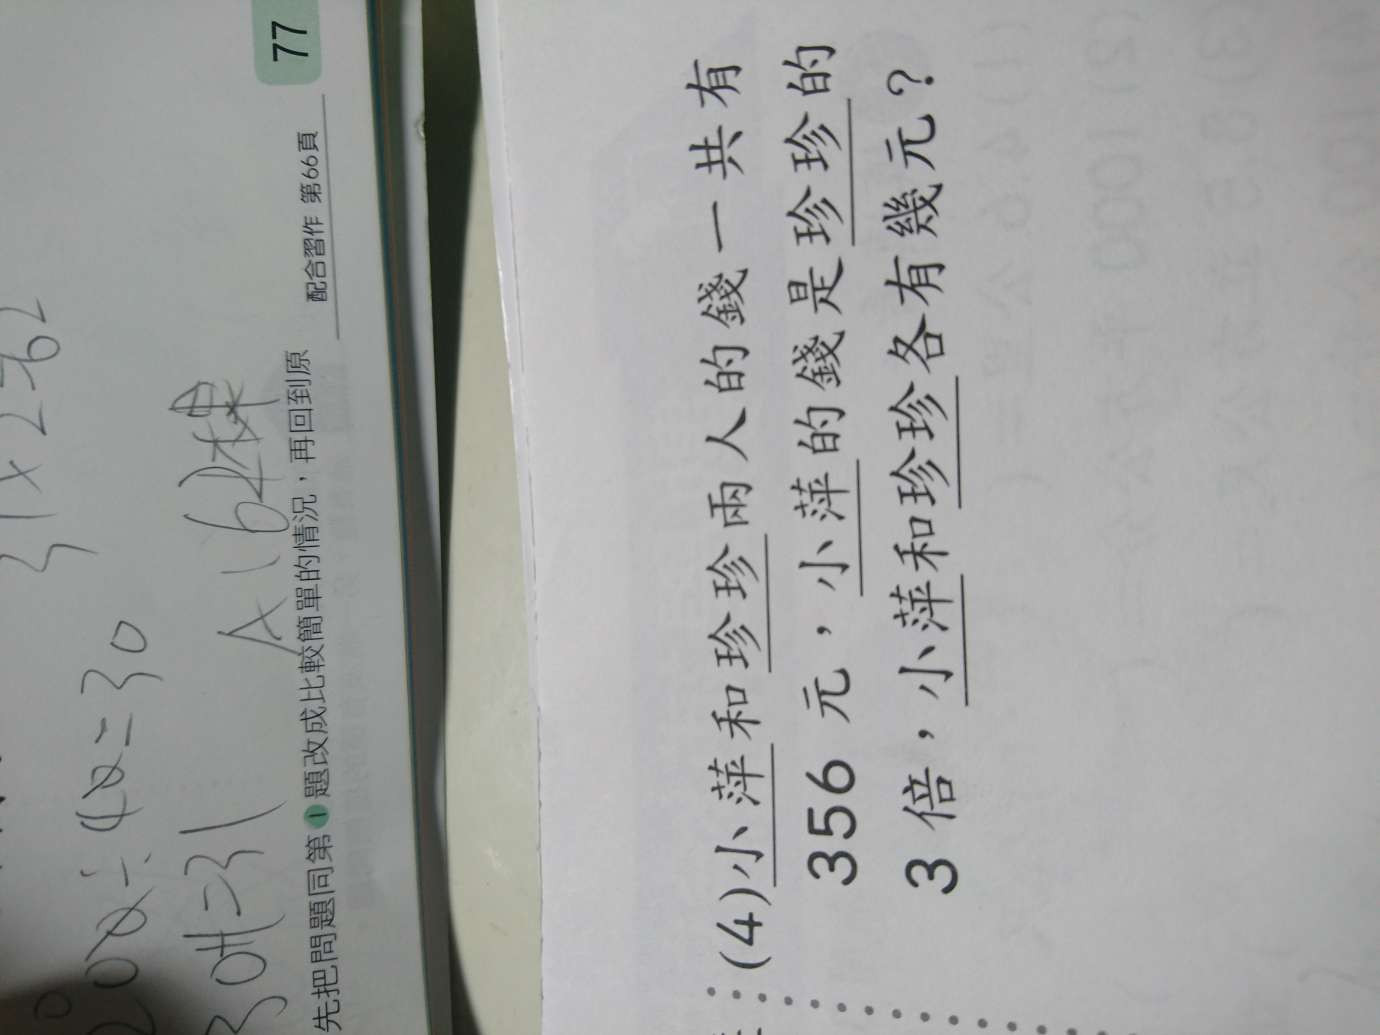 (4)小萍和珍珍兩人的錢一共有
356元，小萍的錢是珍珍的
3倍，小萍和珍珍各有幾元？
30+1=31
A：62棵
先把問題同第1題改成比較簡單的情況，再回到原
配合習作 第66頁
77